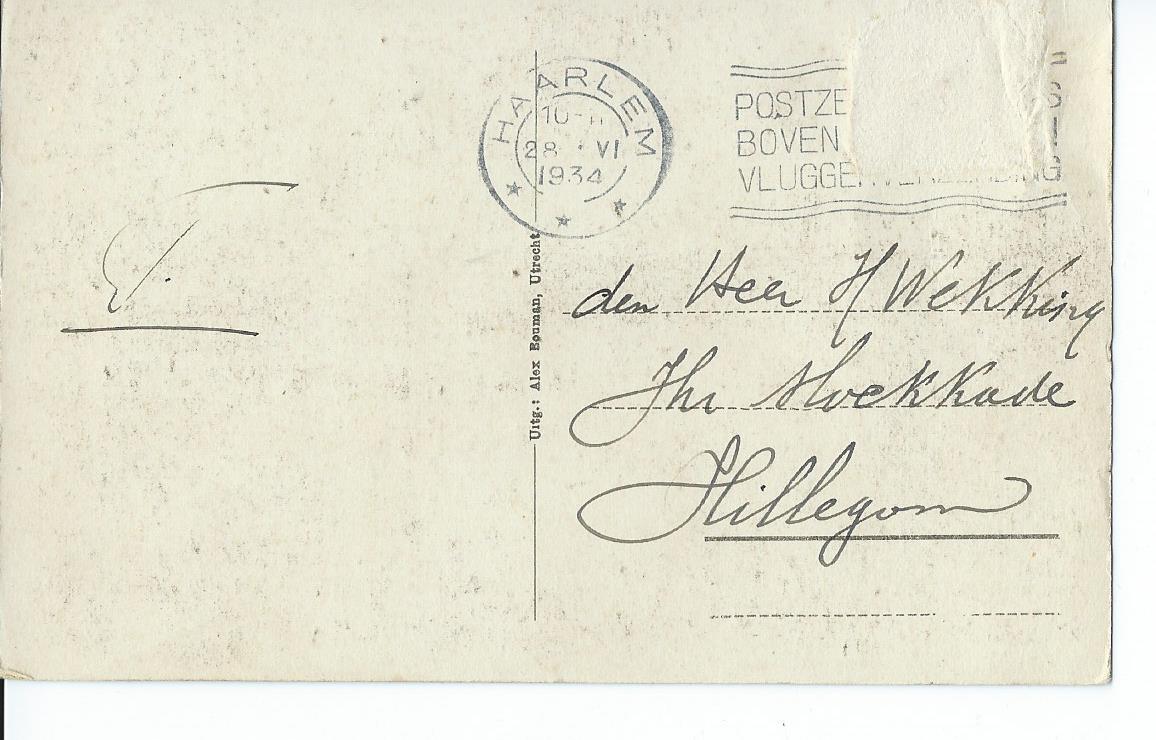 HAARLEM
10-
28 · VI
1934
POSTZE S
BOVEN
VLUGGE
Uitg.: Alex Bouman, Utrecht
den Heer H Wekking
Hoekkade
Hillegom